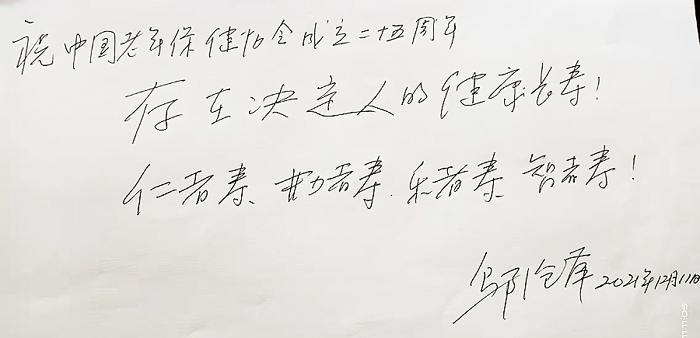 祝中国老年保健协会成立二十五周年
存在决定人的健康长寿!
仁者寿、勤者寿、乐者寿、智者寿!
邬沧萍 2021年12月11日